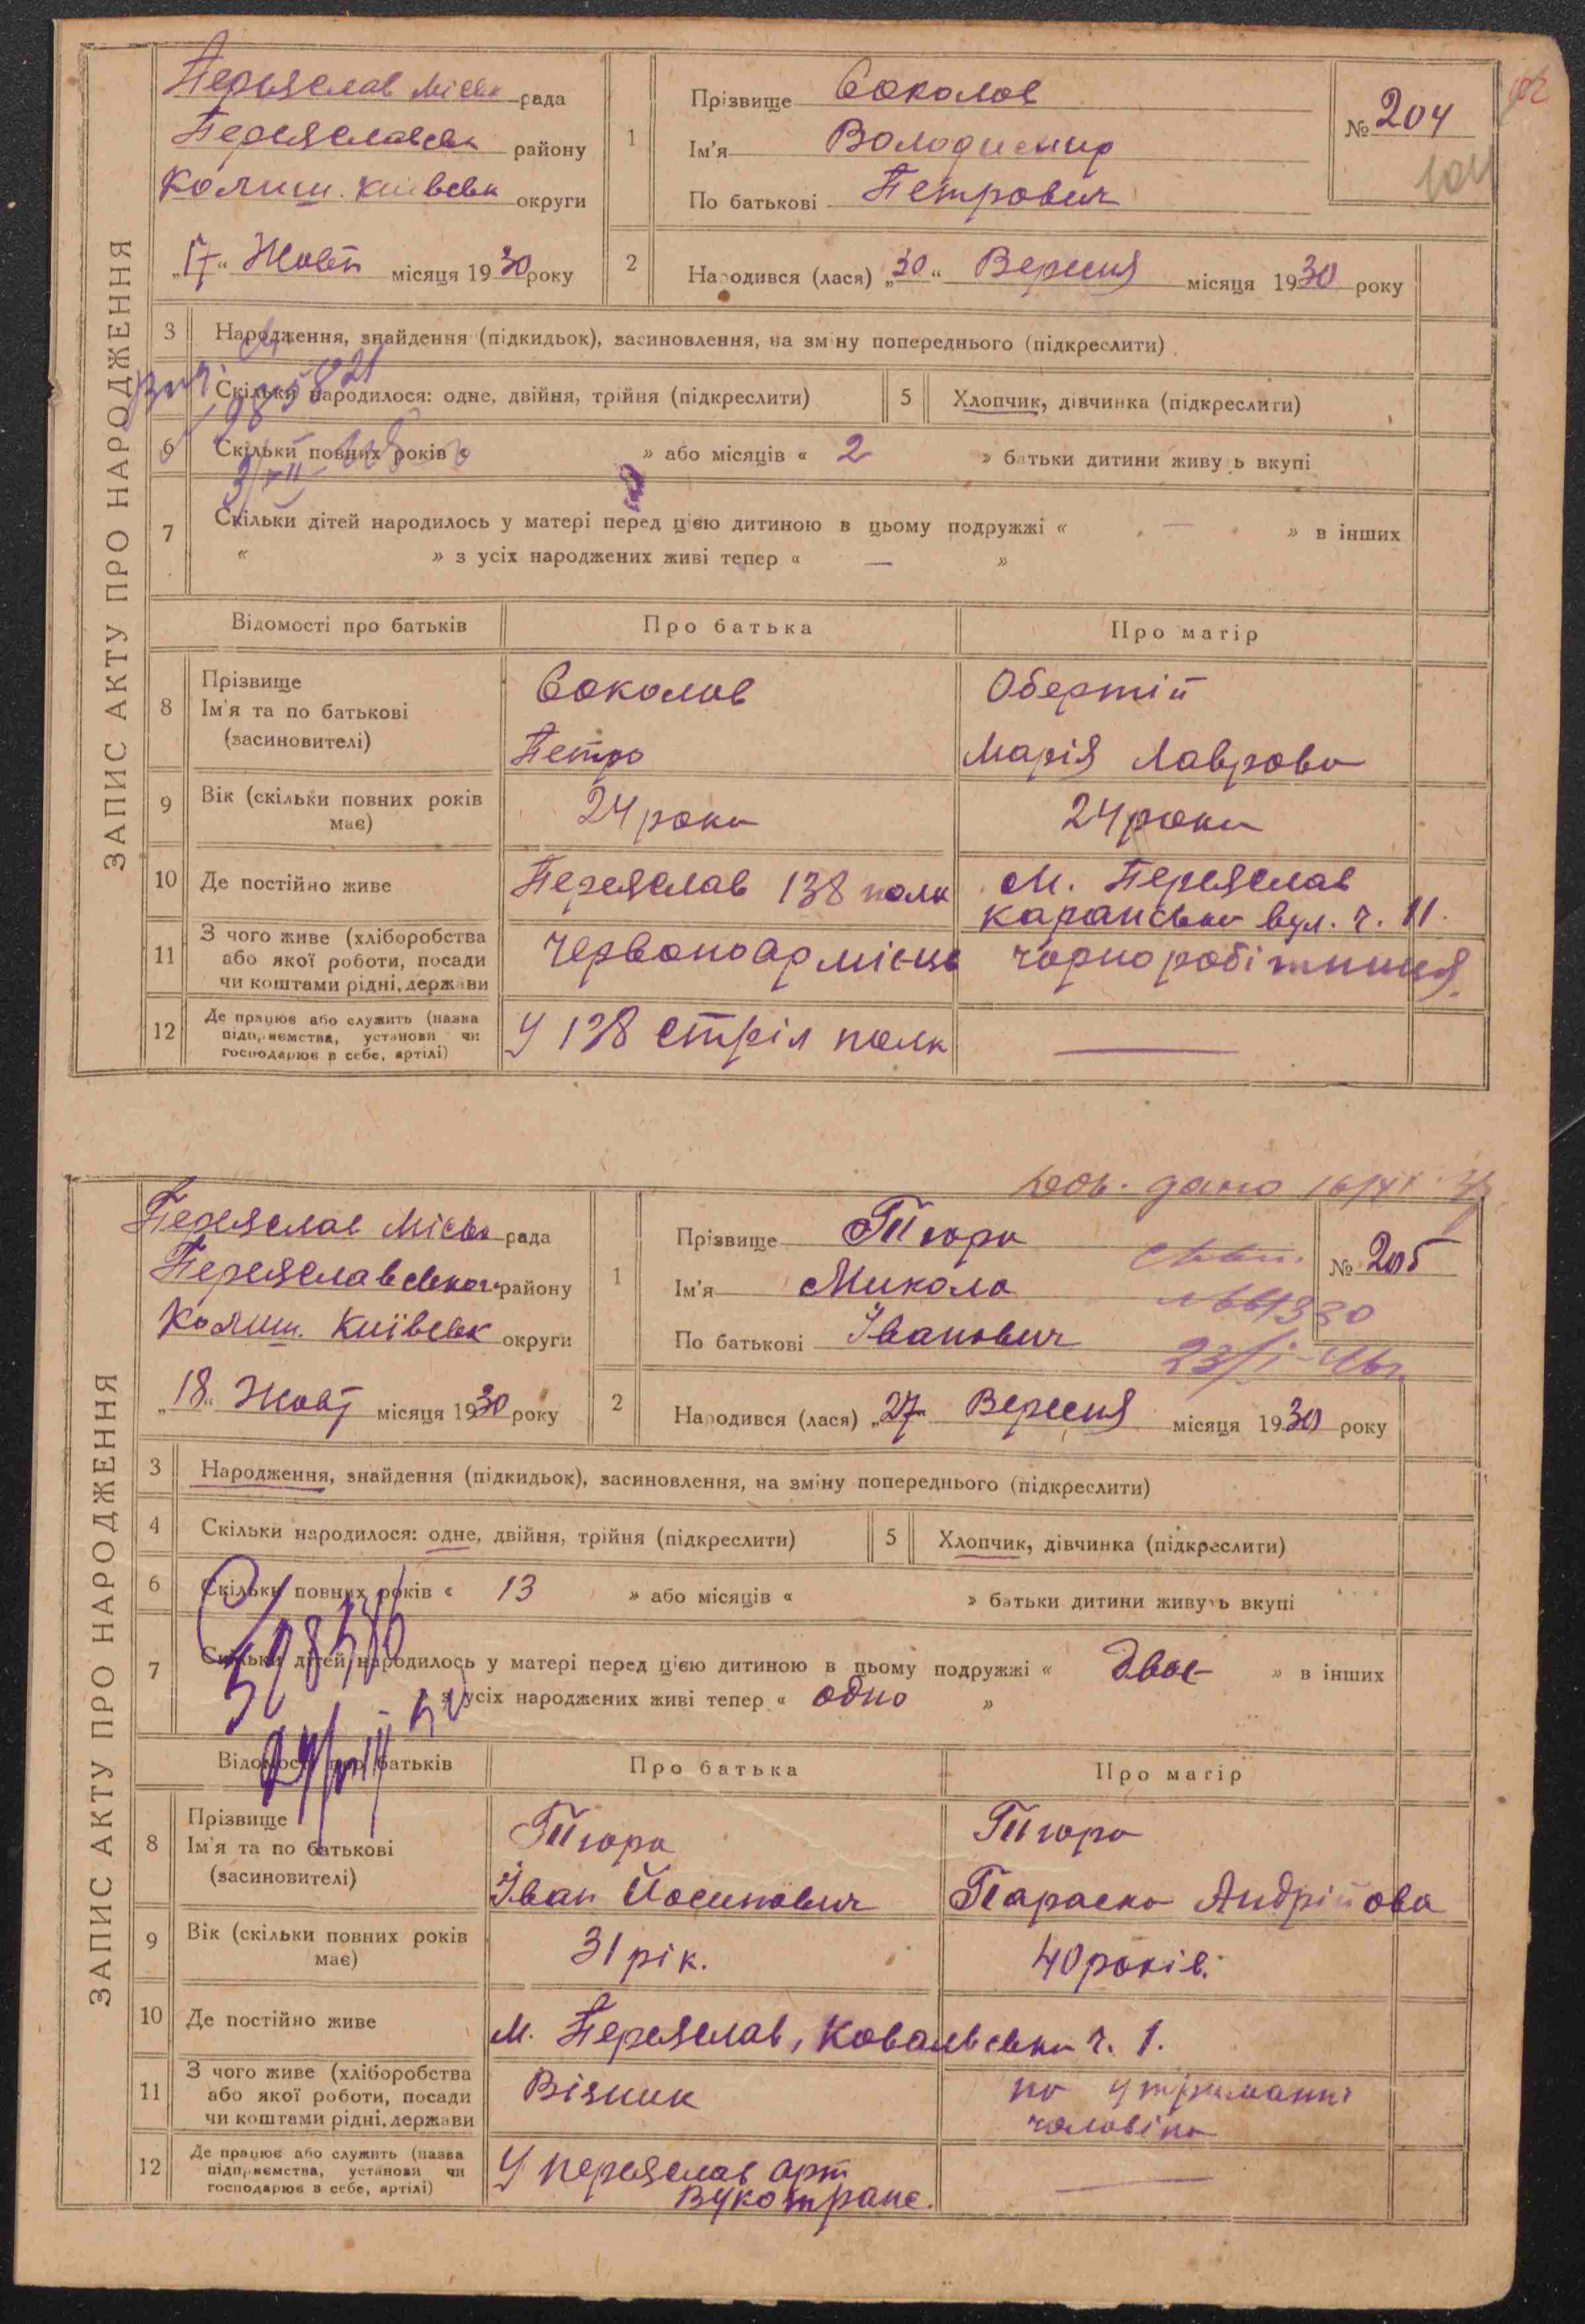 ЗАПИС АКТУ ПРО НАРОДЖЕННЯ
Переяслав Міськ рада
Переяславськ району
Колиш. Київськ округи
„17“ Жовт місяця 1930 року
1
Прізвище Соколов
Ім'я Володимир
По батькові Петрович
№ 204
104
102
2
Народився (лася) „30“ Вересня місяця 1930 року
3 Народження, знайдення (підкидьок), засиновлення, на зміну попереднього (підкреслити)
Скільки народилося: одне, двійня, трійня (підкреслити)
5 Хлопчик, дівчинка (підкреслити)
6 Скільки повних років « » або місяців « 2 » батьки дитини живуть вкупі
7 Скільки дітей народилось у матері перед цією дитиною в цьому подружжі « — » в інших
« » з усіх народжених живі тепер « — »
Відомості про батьків Про батька Про матір
8 Прізвище Ім'я та по батькові (засиновителі)
Соколов Обертій
Петро Марія Лаврова
9 Вік (скільки повних років має) 24 роки 24 роки
10 Де постійно живе Переяслав 138 полк м. Переяслав
Каранська вул. ч. 11.
11 З чого живе (хліборобства або якої роботи, посади чи коштами рідні, держави Червоноармієць чорноробітниця
12 Де працює або служить (назва підприємства, установи чи господарює в себе, артілі) У 138 стріл полк —
ЗАПИС АКТУ ПРО НАРОДЖЕННЯ
дано
Переяслав Міськ рада
Переяславського району
Колиш. Київськ округи
„18“ Жовт місяця 1930 року
1
Прізвище Тюра
Ім'я Микола
По батькові Іванович
№ 205
2
Народився (лася) „27“ Вересня місяця 1930 року
3 Народження, знайдення (підкидьок), засиновлення, на зміну попереднього (підкреслити)
4 Скільки народилося: одне, двійня, трійня (підкреслити)
5 Хлопчик, дівчинка (підкреслити)
6 Скільки повних років « 13 » або місяців « » батьки дитини живуть вкупі
7 Скільки дітей народилось у матері перед цією дитиною в цьому подружжі « двоє » в інших
з усіх народжених живі тепер « одно »
Відомості про батьків Про батька Про матір
8 Прізвище Ім'я та по батькові (засиновителі)
Тюра Тюра
Іван Йосипович Параска Андрійова
9 Вік (скільки повних років має) 31 рік. 40 років.
10 Де постійно живе м. Переяслав, Ковалівська ч. 1.
11 З чого живе (хліборобства або якої роботи, посади чи коштами рідні, держави Візник на утриманні
чоловіка
12 Де працює або служить (назва підприємства, установи чи господарює в себе, артілі) У переяслав арт —
Вукотранс.